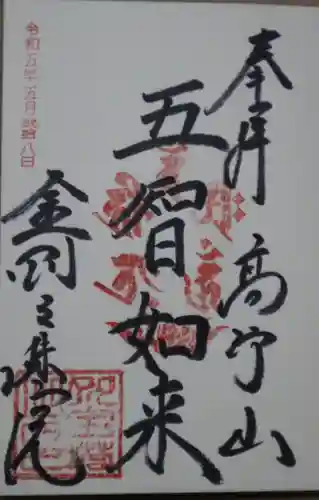 奉拝 高守山
五智如来
金剛三昧院
令和五年五月弐拾八日